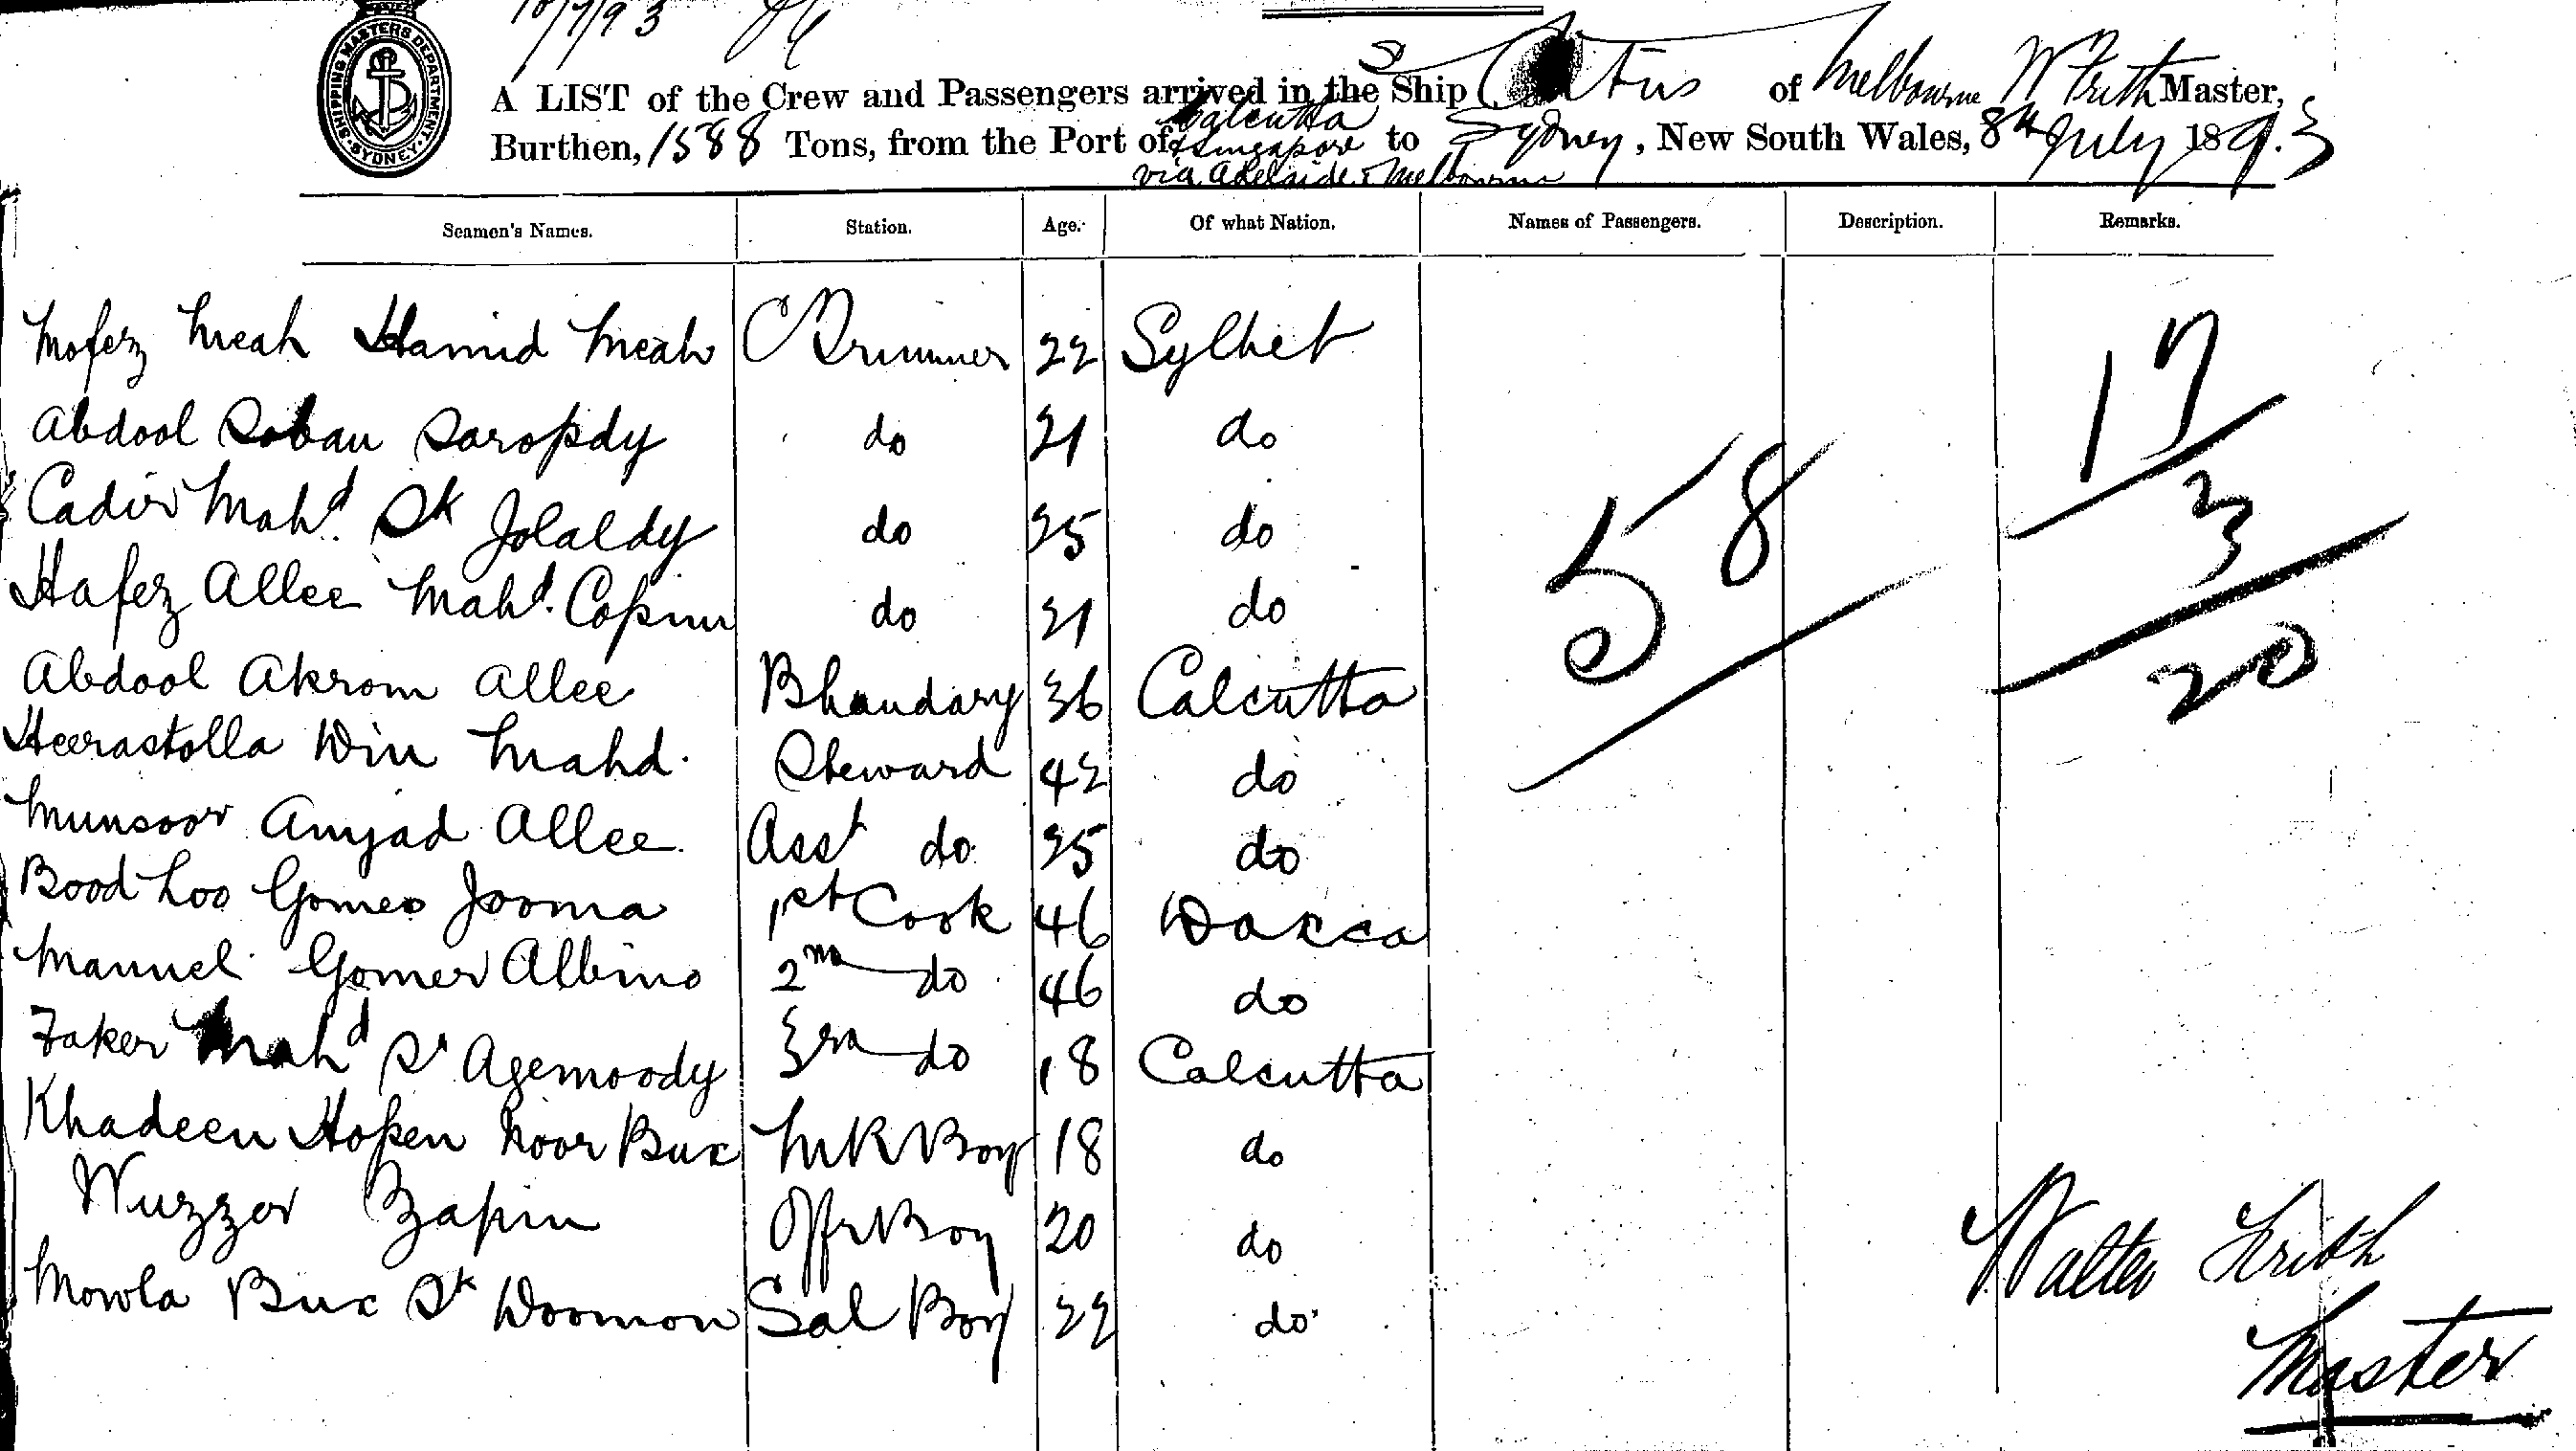 10/7/93
SHIPPING MASTERS DEPARTMENT SYDNEY
A LIST of the Crew and Passengers arrived in the S Ship Catus of Melbourne W Frith Master,
Burthen, 1588 Tons, from the Port of Calcutta & Singapore to Sydney, New South Wales, 8th July 1893
via Adelaide & Melbourne
Seamen's Names. Station. Age. Of what Nation. Names of Passengers. Description. Remarks.
Mofez Meah Hamid Meah C Trimmer 22 Sylhet
Abdool Soban Saropdy do 21 do
Cadir Mahd Sk Jolaldy do 25 do
Hafez Allee Mahd. Copin do 21 do
Abdool Akrom Allee Bhandary 36 Calcutta
Heerastolla Din Mahd. Steward 42 do
Munsoor Amjad Allee Asst do 25 do
Bood hoo Gomes Jooma 1st Cook 46 Dacca
Manuel Gomes Albino 2nd do 46 do
Faker Mahd Sk Agemoody 3rd do 18 Calcutta
Khadeen Hosen Noor Bux M R Boy 18 do
Wuzzer Zapin Offr Boy 20 do
Mowla Bux Sk Doomon Sal Boy 22 do
58
17
3
20
Walter Frith
Master